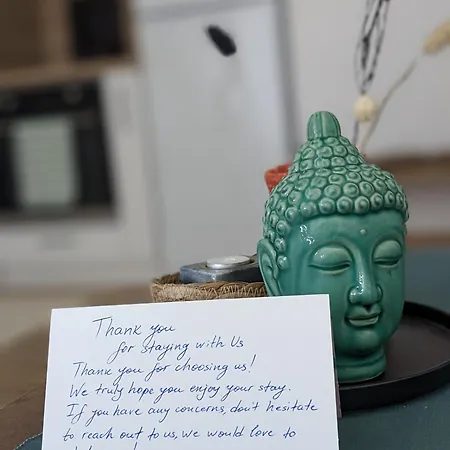 Thank you
for staying with Us
Thank you for choosing us!
We truly hope you enjoy your stay.
If you have any concerns, don't hesitate
to reach out to us, we would love to